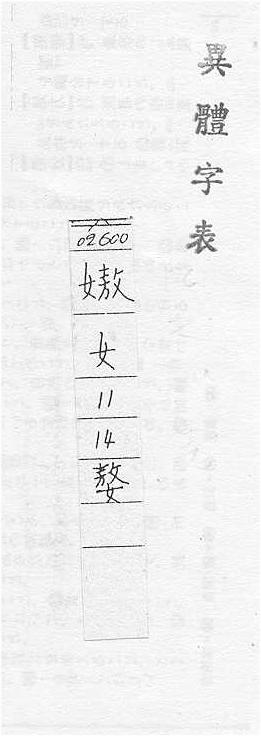 異體字表
02600
㜜
女
11
14
嫯